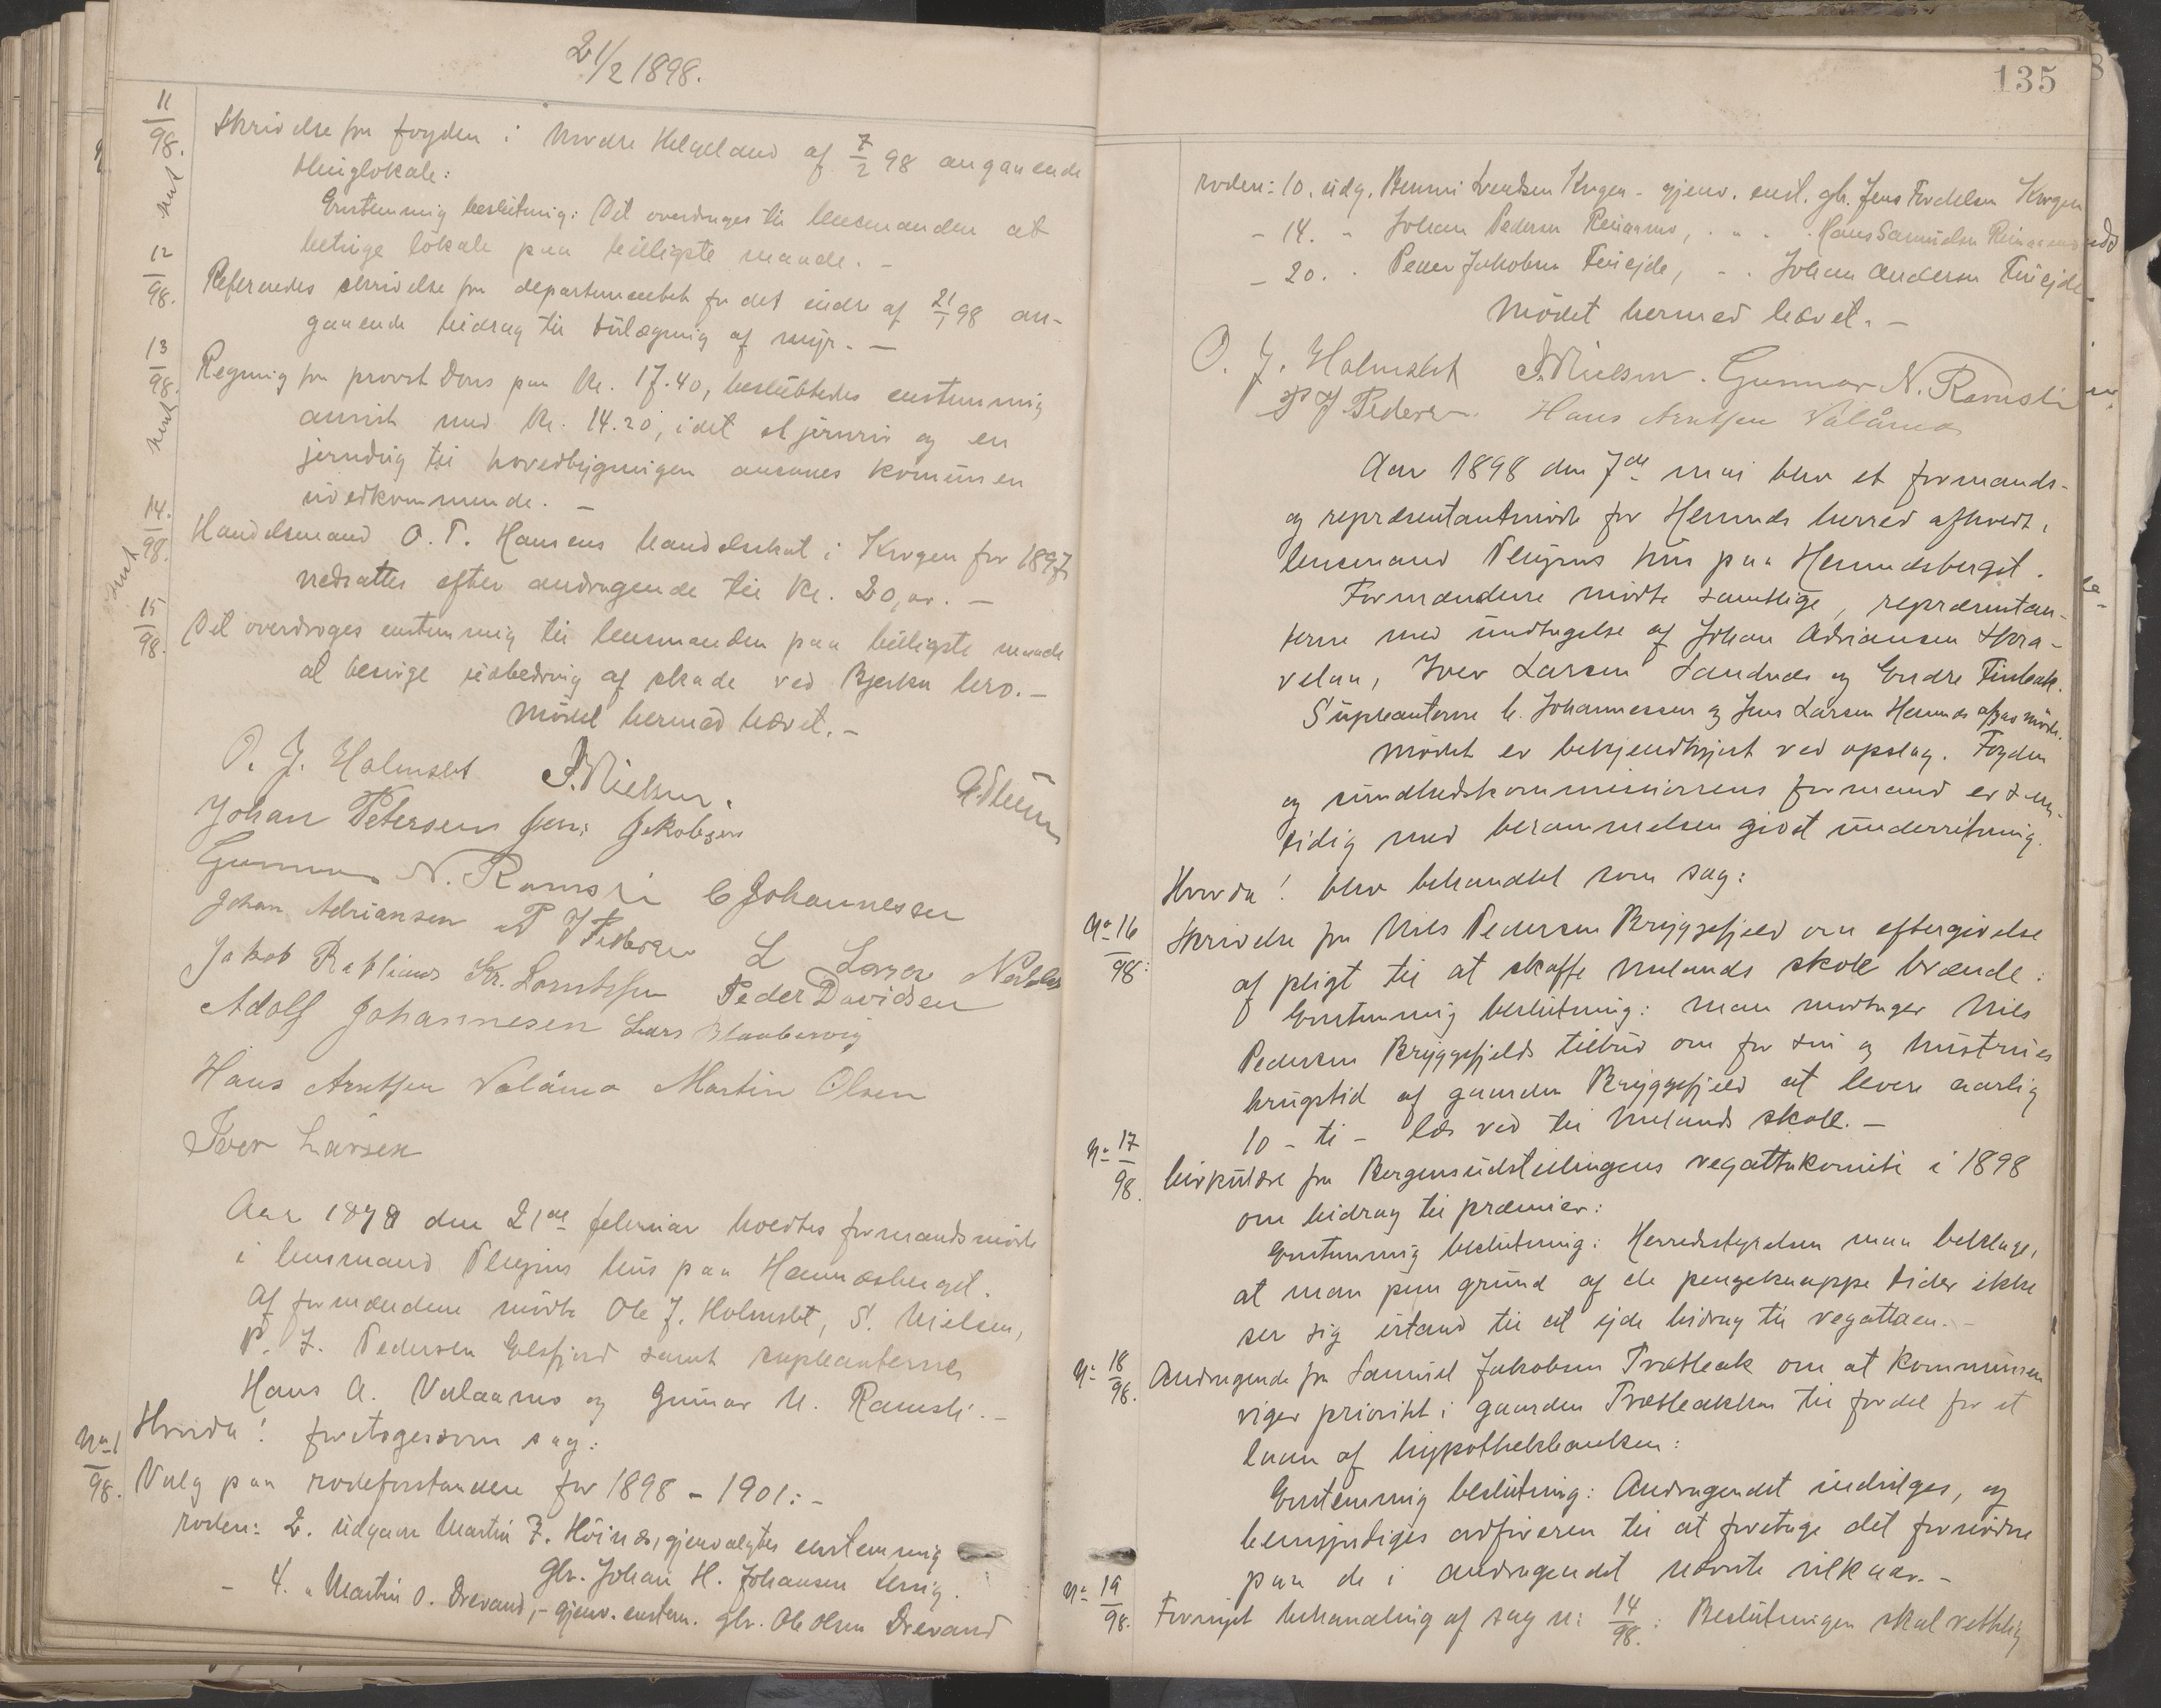 21/2 1898.
11/98. Skrivelse fra fogden i Nordre Helgeland af 7/2 98 angaaende
thinglokale:
Enstemmig beslutning: Det overdrages til lensmanden at
betinge lokale paa billigste maade. –
12/98. Refereredes skrivelse fra departementet for det indre af 21/1 98 an-
gaaende bidrag til udlægning af myr. –
13/98. Regning fra provst Dons paa Kr. 17.40, besluttedes enstemmig
anvist med Kr. 14.20, idet et jernrør og en
til hovedbygningen ansaaes kommunen
uvedkommende. –
14/98. Handelsmand O. T. Hansens handelsskat i Krogen for 1897
nedsattes efter andragende til Kr. 20,00. –
15/98. Det overdroges enstemmig til lensmanden paa billigste maade
at besørge udbedring af skade ved Bjerka bro. –
Mødet hermed hævet. –
O. J. Holmslet S. Nielsen.
Johan Petersen Jens Jakobsen
Gunnar N. Ramsli C Johannessen
Johan Adriansen P J Pedersen L Larsen
Jakob Kr. Lorntsen Peder Davidsen
Adolf Johannesen Lars
Hans Arntsen Valåmo Martin Olsen
Iver Larsen
Aar 1898 den 21de februar holdtes formandsmøde
i lensmand Pleyms hus paa Hemnæsberget.
Af formændene mødte Ole J. Holmslet, S. Nielsen,
P. J. Pedersen Elsfjord samt supleanterne
Hans A. Valaamo og Gunnar N. Ramsli. –
Hvorda! foretoges som sag:
No 1/98. Valg paa rodeforstandere for 1898 – 1901: –
roden: 2. udgaar Martin J. Höinæs, gjenvalgtes enstemmig
gbr. Johan H. Johansen
– 4. " Martin O. Drevand, – gjenv. enstem. gbr. Ole Olsen Drevand
135
roden: 10. udg. Benni Svendsen Krogen – gjenv. enst. gbr. Jens Krogen
– 14. " Johan Pedersen " " Hans Samuelsen
– 20. " Peder Jakobsen – . Johan Andersen
Mødet hermed hævet. –
O. J. Holmslet S. Nielsen. Gunnar N. Ramsli
P J Pedersen. Hans Arntsen Valåmo
Aar 1898 den 7de mai blev et formands-
og repræsentantmøde for Hemnes herred afholdt i
lensmand Pleyms hus paa Hemnæsberget.
Formændene mødte samtlige, repræsentan-
terne med undtagelse af Johan Adriansen
Iver Larsen Sandnes og Endre Finbak.
Supleanterne C. Johannessen og Jens Larsen Hemnes mødte.
Mødet er bekjendtgjort ved opslag. Fogden
og sundhedskommissionens formand er sam-
tidig med berammelsen givet underretning.
Hvorda! blev behandlet som sag:
No 16/98: Skrivelse fra Nils Pedersen Bryggefjeld om eftergivelse
af pligt til at skaffe Mulands skole brænde:
Enstemmig beslutning: Man modtager Nils
Pedersen Bryggefjelds tilbud om for sin og hustrues
brugstid af gaarden Bryggefjeld at levere aarlig
10 – ti – læs ved til Mulands skole. –
No 17/98. Cirkulære fra Bergensudstillingens regattakomite i 1898
om bidrag til præmier:
Enstemmig beslutning: Herredsstyrelsen maa beklage,
at man paa grund af de pengeknappe tider ikke
ser sig istand til at yde bidrag til regattaen. –
No 18/98. Andragende fra Samuel Jakobsen Trætbak om at kommunen
viger prioritet i gaarden Trætbakken til fordel for et
laan af hypothekbanken:
Enstemmig beslutning: Andragendet indvilges, og
bemyndiges ordføreren til at foretage det fornødne
paa de i andragendet nævnte vilkaar. –
No 19/98. Fornyet behandling af sag no 14/98: Beslutningen skal rettelig